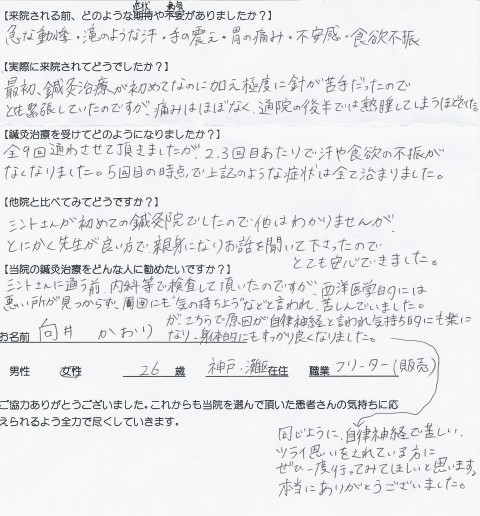 【来院される前、どのような期待や不安がありましたか？】
急な動悸・滝のような汗・手の震え・胃の痛み・不安感・食欲不振
【実際に来院されてどうでしたか？】
最初、鍼灸治療が初めてなのに加え極度に針が苦手だったので
とても緊張していたのですが、痛みはほぼなく、通院の後半では熟睡してしまうほどでした。
【鍼灸治療を受けてどのようになりましたか？】
全9回通わさせて頂きましたが、2、3回目あたりで汗や食欲の不振が
なくなりました。5回目の時点で上記のような症状は全て治まりました。
【他院と比べてみてどうですか？】
ミントさんが初めての鍼灸院でしたので他はわかりませんが、
とにかく先生が良い方で、親身になりお話を聞いて下さったので
とても安心できました。
【当院の鍼灸治療をどんな人に勧めたいですか？】
ミントさんに通う前、内科等で検査して頂いたのですが、西洋医学的には
悪い所が見つからず、周囲にも"気の持ちよう"などと言われ、苦しんでいました。
が、こちらで原因が自律神経と言われ気持ち的にも楽に
なり、身体的にもすっかり良くなりました。
お名前 向井 かおり
男性 女性 26 歳 神戸・灘区 在住 職業 フリーター(販売)
ご協力ありがとうございました。これからも当院を選んで頂いた患者さんの気持ちに応
えられるよう全力で尽くしていきます。
同じように、自律神経で苦しい、
ツライ思いをされている方に
ぜひ一度行ってみてほしいと思います。
本当にありがとうございました。